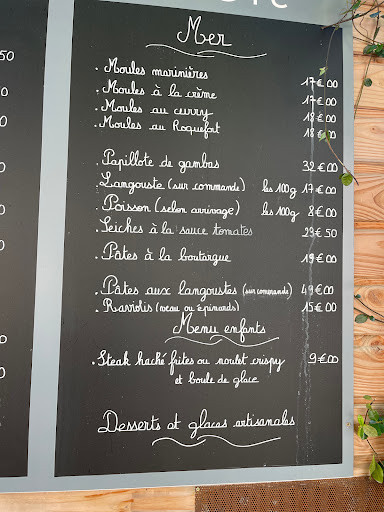 Mer
. Moules marinières 17€00
. Moules à la crème 17€00
. Moules au curry 18€00
. Moules au Roquefort 18€00
. Papillote de gambas 32€00
Langouste (sur commande) les 100g 17€00
. Poisson (selon arrivage) les 100g 8€00
. Seiches à la sauce tomates 23€50
. Pâtes à la boutargue 19€00
. Pâtes aux langoustes (sur commande) 49€00
. Raviolis (veau ou épinards) 15€00
Menu enfants
. Steak haché frites ou poulet crispy 9€00
et boule de glace
Desserts et glaces artisanales